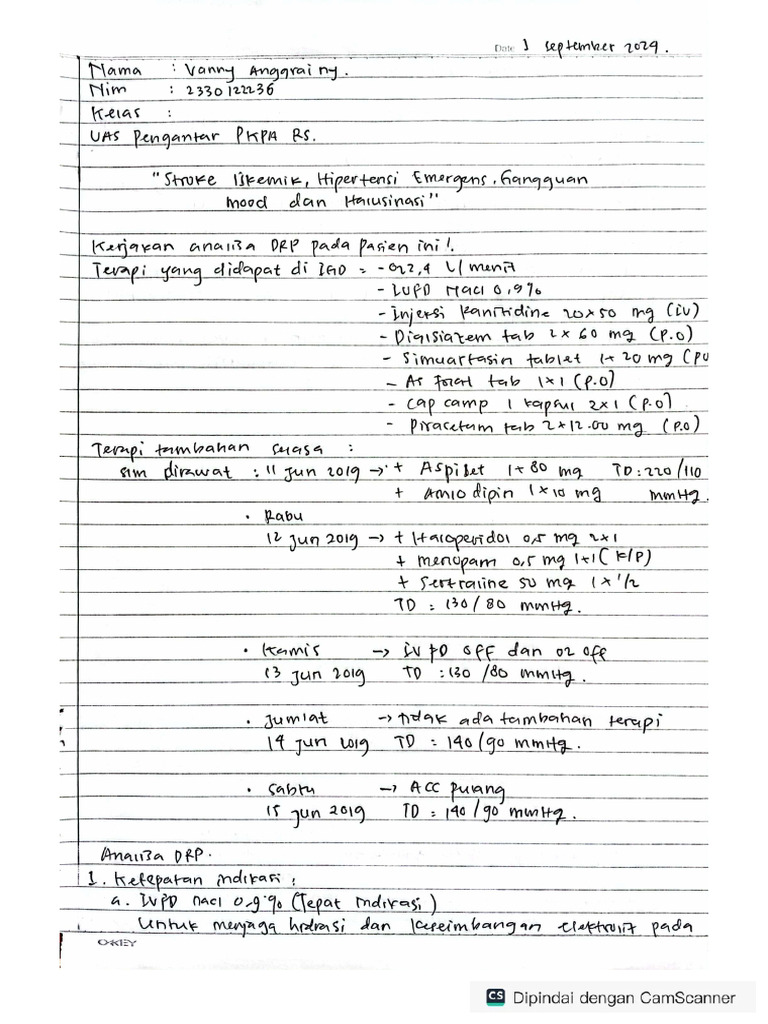 Date 1 September 2024.
Nama : Vanny Anggrainy.
Nim : 2330122236
Kelas :
UAS Pengantar PKPA RS.
"Stroke Iskemik, Hipertensi Emergens, Gangguan
mood dan Halusinasi"
Kerjakan analisa DRP pada pasien ini!.
Terapi yang didapat di IGD = - O2 2,4 L/menit
- IVFD Nacl 0,9%
- Injeksi Ranitidine 20x50 mg (iv)
- Digisiazem tab 2 x 60 mg (p.o)
- Simuartasin tablet 1x 20 mg (po
- As Folat tab 1x1 (p.o)
- Cap camp 1 kapsul 2x1 (p.o)
- Piracetam tab 2x12.00 mg (p.o)
Terapi tambahan suasa :
slm dirawat : 11 Jun 2019 → + Aspilet 1x80 mg TD: 220/110
+ Amlodipin 1x10 mg mmHg.
• Rabu
12 Jun 2019 → + Haloperidol 0,5 mg 2x1
+ merlopam 0,5 mg 1x1 (K/P)
+ Sertraline 50 mg 1 x 1/2
TD : 130/80 mmHg.
• Kamis → IVFD OFF dan O2 off
13 Jun 2019 TD : 130/80 mmHg.
• Jumlat → tidak ada tambahan terapi
14 Jun 2019 TD = 140/90 mmHg.
• Sabtu → ACC pulang
15 Jun 2019 TD = 140/90 mmHg.
Analisa DRP.
1. Ketepatan indikasi :
a. IVFD nacl 0,9% (Tepat Indikasi)
Untuk menjaga hidrasi dan keseimbangan elektrolit pada
OKEY
CS Dipindai dengan CamScanner